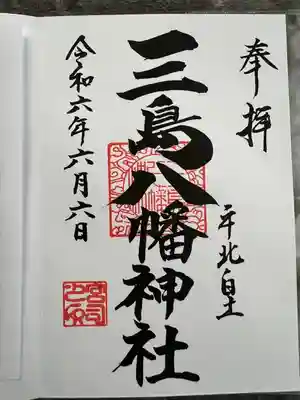 奉拝
平北白土
三島八幡神社
令和六年六月六日